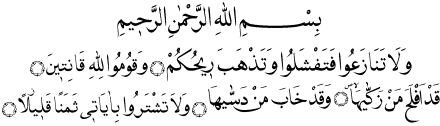 بِسْمِ اللهِ الرَّحْمٰنِ الرَّحِيمِ
وَلَا تَنَازَعُوا فَتَفْشَلُوا وَتَذْهَبَ رِيحُكُمْ ۝ وَقُومُوا لِلّٰهِ قَانِتِينَ ۝
قَدْ اَفْلَحَ مَنْ زَكّٰيهَا ۝ وَقَدْ خَابَ مَنْ دَسّٰيهَا ۝ وَلَا تَشْتَرُوا بِاٰيَاتِى ثَمَنًا قَلِيلًا ۝